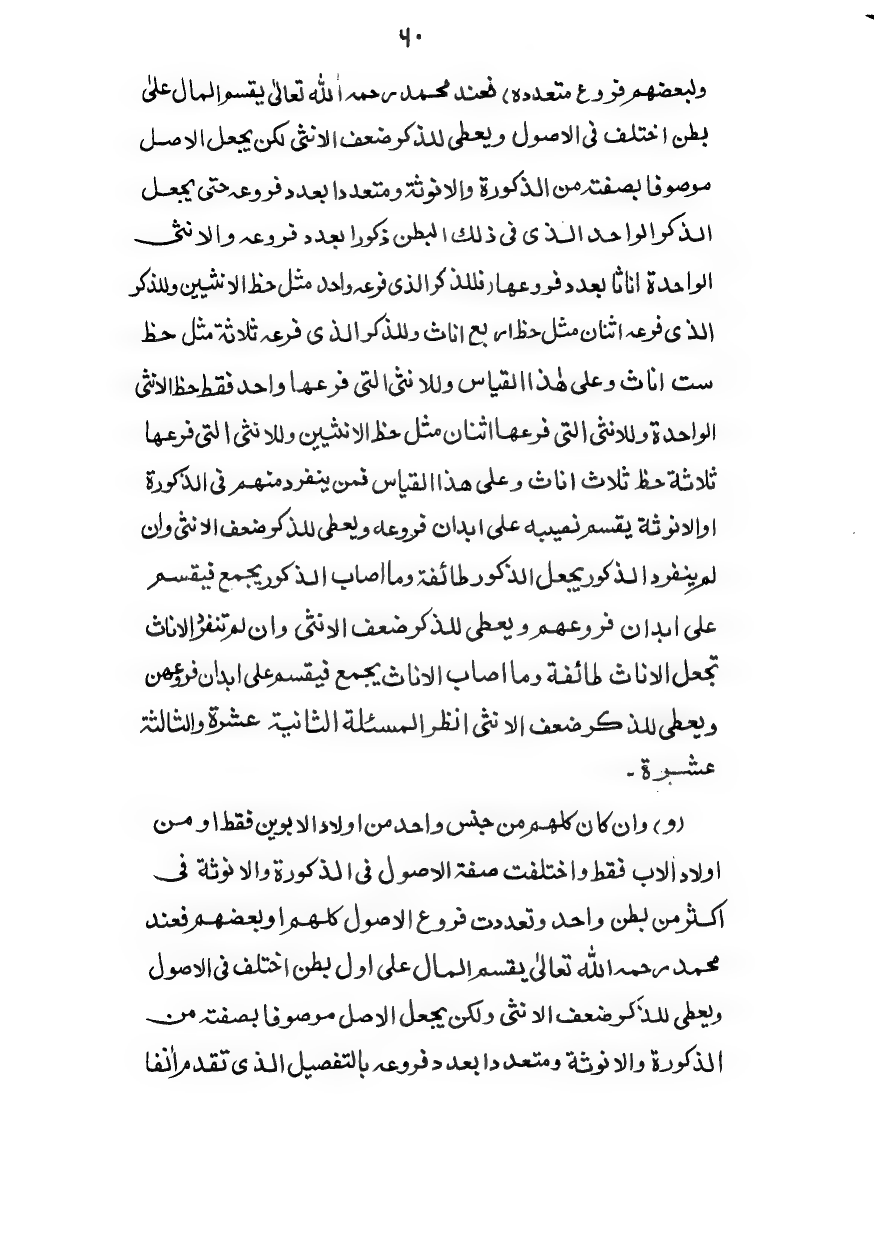 ۶۰
ولبعضهم فروع متعددة) فعند محمد رحمه الله تعالىٰ يقسم المال علىٰ
بطن اختلف فى الاصول ويعطى للذكر ضعف الانثى لكن يجعل الاصل
موصوفا بصفته من الذكورة والانوثة ومتعددا بعدد فروعه حتى يجعل
الذكر الواحد الذى فى ذلك البطن ذكورا بعدد فروعه والانثى
الواحدة اناثا بعدد فروعها، فللذكر الذى فرعه واحد مثل حظ الانثيين وللذكر
الذى فرعه اثنان مثل حظ اربع اناث وللذكر الذى فرعه ثلاثة مثل حظ
ست اناث وعلى هٰذا القياس وللانثى التى فرعها واحد فقط حظ الانثى
الواحدة وللانثى التى فرعها اثنان مثل حظ الانثيين وللانثى التى فرعها
ثلاثة حظ ثلاث اناث وعلى هذا القياس فمن ينفرد منهم فى الذكورة
اوالانوثة يقسم نصيبه على ابدان فروعه ويعطى للذكر ضعف الانثى وان
لم ينفرد الذكور يجعل الذكور طائفة وما اصاب الذكور يجمع فيقسم
على ابدان فروعهم ويعطى للذكر ضعف الانثى وان لم تنفرد الاناث
تجعل الاناث طائفة وما اصاب الاناث يجمع فيقسم على ابدان فروعهن
ويعطى للذكر ضعف الانثى انظر المسئلة الثانية عشرة والثالثة
عشرة ـ
(و) وان كان كلهم من جنس واحد من اولاد الابوين فقط او من
اولاد الاب فقط واختلفت صفة الاصول فى الذكورة والانوثة فى
اكثر من بطن واحد وتعددت فروع الاصول كلهم او بعضهم فعند
محمد رحمه الله تعالىٰ يقسم المال على اول بطن اختلف فى الاصول
ويعطى للذكر ضعف الانثى ولكن يجعل الاصل موصوفا بصفته من
الذكورة والانوثة ومتعددا بعدد فروعه بالتفصيل الذى تقدم اٰنفا